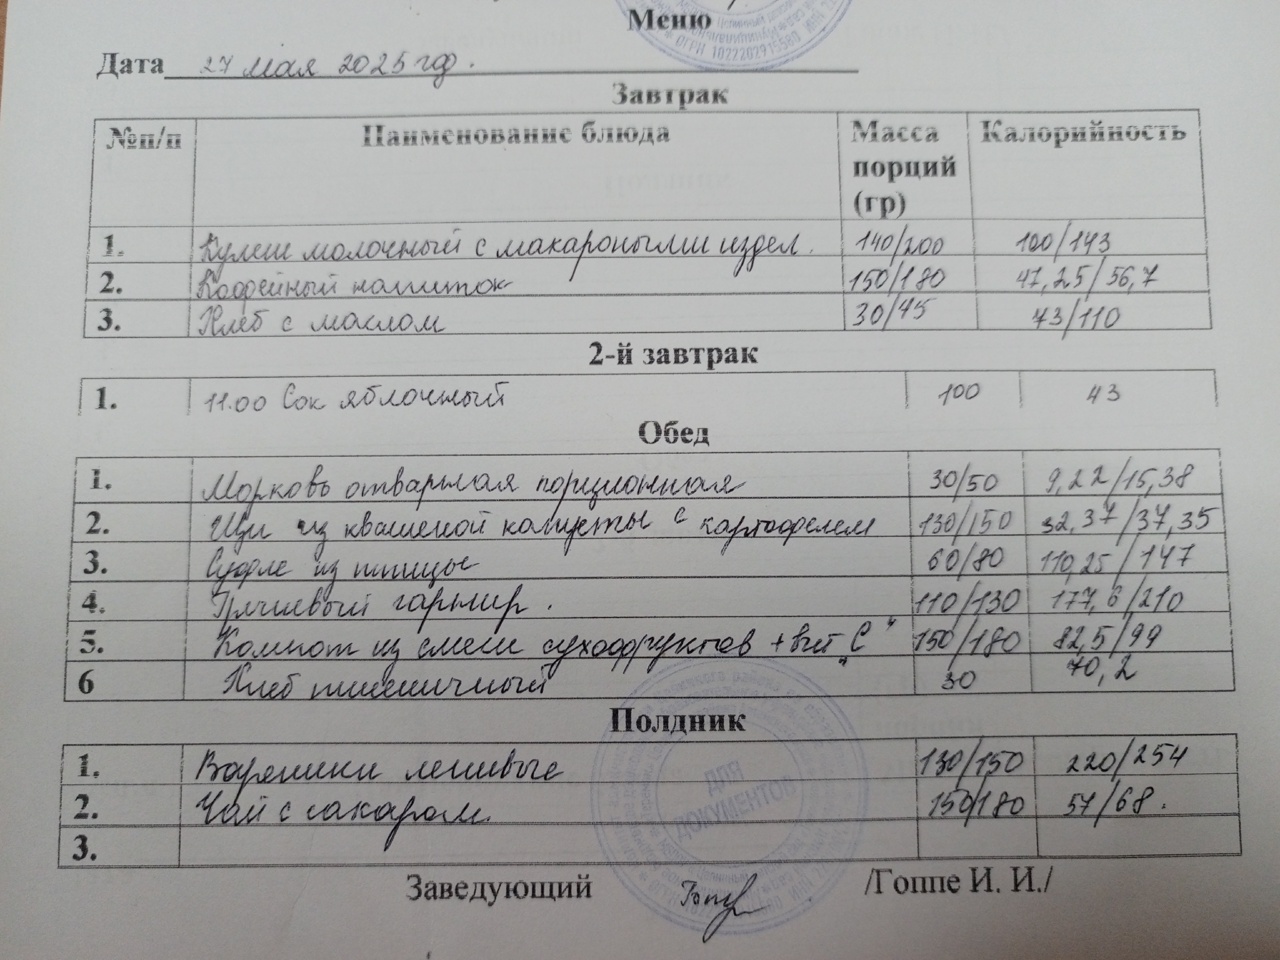 Меню
ОГРН 1022202915580 ИНН
Дата 27 мая 2025 год.
Завтрак
№п/п Наименование блюда Масса порций (гр) Калорийность
1. Кулеш молочный с макароными издел. 140/200 100/143
2. Кофейный напиток 150/180 47,25/56,7
3. Хлеб с маслом 30/45 73/110
2-й завтрак
1. 11.00 Сок яблочный 100 43
Обед
1. Морковь отварная порционная 30/50 9,22/15,38
2. Щи из квашеной капусты с картофелем 130/150 32,37/37,35
3. Суфле из птицы 60/80 110,25/147
4. Гречневый гарнир. 110/130 177,6/210
5. Компот из смеси сухофруктов + вит „С" 150/180 82,5/99
6 Хлеб пшеничный 30 70,2
Полдник
1. Вареники ленивые 130/150 220/254
2. Чай с сахаром. 150/180 57/68.
3.
ДЛЯ ДОКУМЕНТОВ
Заведующий /Гоппе И. И./